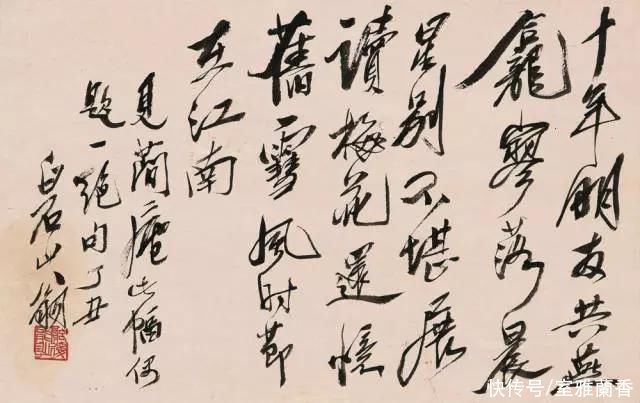 十年朋友共燕
龕寥落晨
星別不堪展
讀梅花還憶
舊雪風時節
在江南
見簡庵此幅偶
題一絕句丁丑
白石山翁
快传号/室雅蘭香